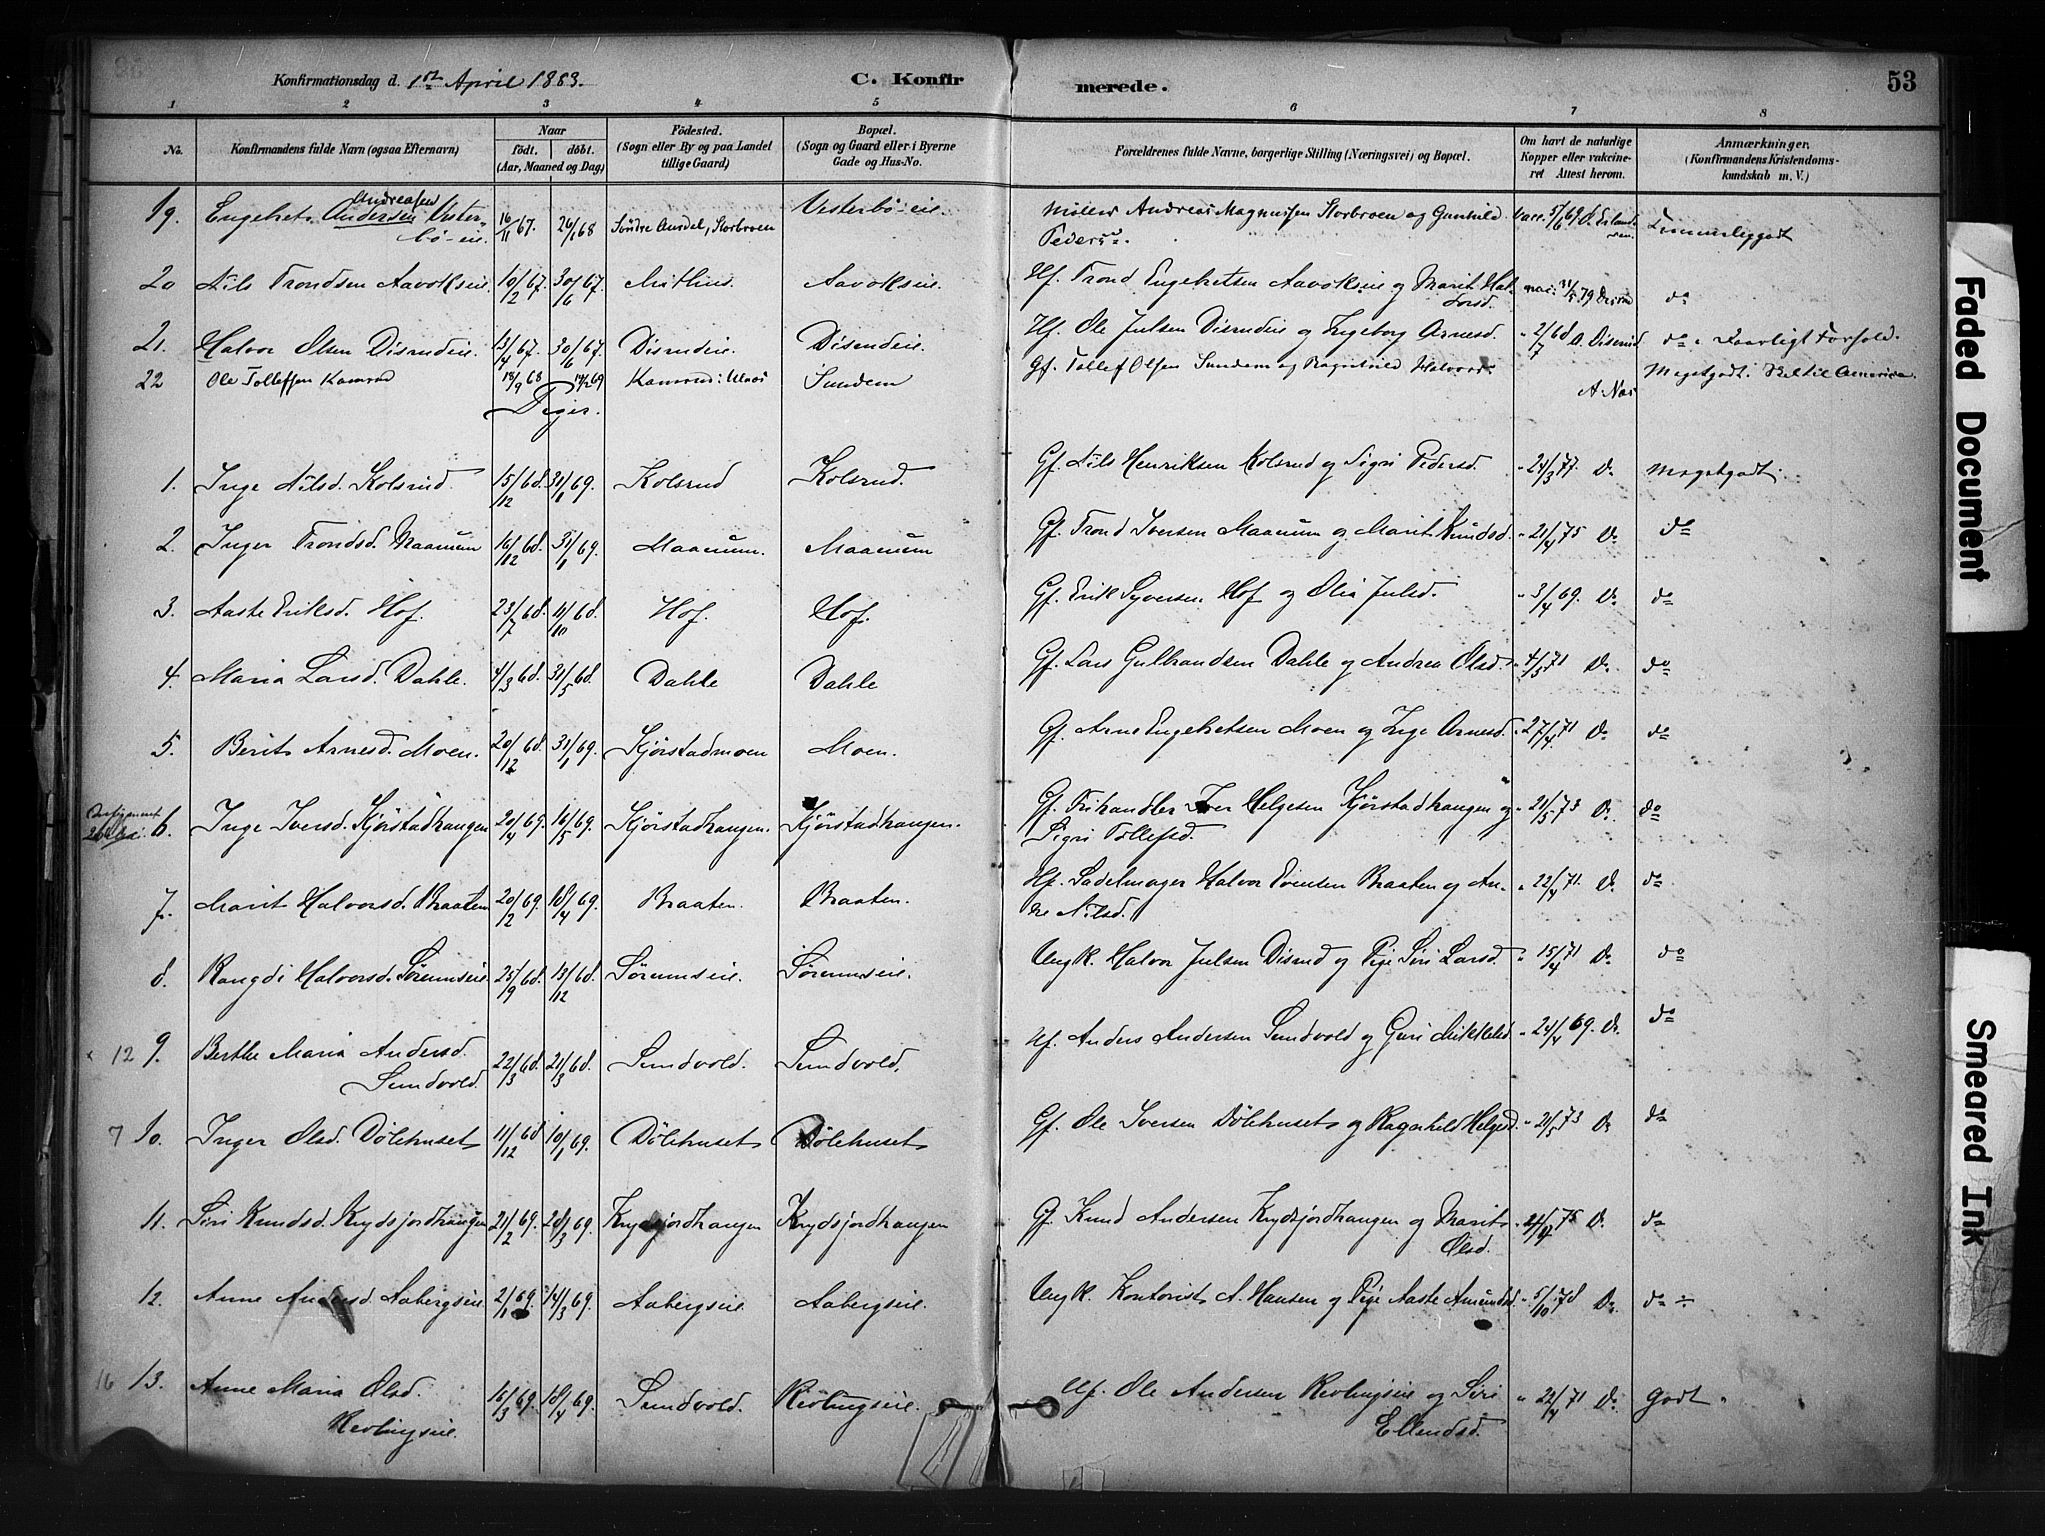 53
Konfirmationsdag d. 1ste April 1883.
C. Konfirmerede.
1 2 3 4 5 6 7 8
No.
Konfirmandens fulde Navn (ogsaa Efternavn)
Naar
födt. döbt.
(Aar, Maaned og Dag)
Födested.
(Sogn eller By og paa Landet tillige Gaard)
Bopæl.
(Sogn og Gaard eller i Byerne Gade og Hus-No.
Forældrenes fulde Navne, borgerlige Stilling (Næringsvei) og Bopæl.
Om havt de naturlige Kopper eller vakcineret Attest herom.
Anmærkninger.
(Konfirmandens Kristendomskundskab m. V.)
19. Engebret Andersen Andreasen Vesterbö-eie. 16/11 67. 26/1 68 Söndre Aurdal, Storbroen Vesterbö-eie. Möller Andreas Magnussen Storbroen og Gunhild Pedersd. vacc. 5/6 69 Temmeliggodt
20 Nils Trondsen Aavokseie. 10/2 67. 30/6 67. Aavokseie. Hf. Trond Engebretsen Aavokseie og Marit Halvorsd. do
21. Halvor Olsen Disrudeie. 13/4 67. 30/6 67. Disrudeie. Disrudeie. Hf. Ole Julsen Disrudeie og Ingeborg Arnesd. " 2/7 68 do. Daarligt Forhold.
22 Ole Tollefsen Kamrud 18/9 68 Kamrud: Ulnes Sundem Gf. Tollef Olsen Sundem og Ragnhild Halvorsd. A. Næs Megetgodt. til Amerika.
Piger.
1. Inge Nilsd. Kolsrud. 15/12 68. 31/1 69. Kolsrud Kolsrud. Gf. Nils Henriksen Kolsrud og Sigri Pedersd. " 24/3 77. Do Megetgodt.
2. Inger Trondsd. Maanum 16/12 68. 31/1 69. Maanum. Maanum Gf. Trond Iversen Maanum og Marit Knudsd. " 21/4 75 Do do
3. Aaste Eriksd. Hof. 23/7 68. 11/10 68. Hof. Hof. Gf. Erik Syversen Hof og Olia Julsd. " 3/4 69. Do do
4. Maria Larsd. Dahle. 4/3 68. 31/5 68. Dahle Dahle Gf. Lars Gulbrandsen Dahle og Andrea Olsd. " 4/5 71 Do do
5. Berit Arnesd. Moen. 20/12 68. 31/1 69. Kjörstadmoen Moen. Gf. Arne Engebretsen Moen og Inge Arnesd. " 27/4 71 Do do
6. Inge Iversd. Kjörstadhaugen 20/4 69. 16/5 69. Kjörstadhaugen. Kjörstadhaugen. Gf. Frihandler Iver Helgesen Kjörstadhaugen og Sigri Tollefsd. " 21/5 73 Do do
7. Marit Halvorsd. Braaten 20/2 69. 18/4 69. Braaten. Braaten. Hf. Sadelmager Halvor Evensen Braaten og Anne Nilsd. " 22/4 71. Do do
8. Rangdi Halvorsd. Sörumseie. 25/9 68. 13/12 68. Sörumseie. Sörumseie. Ungk. Halvor Julsen Disrud og Pige Siri Larsd. " 15/4 71 Do do
× 12 9. Berthe Maria Andersd. Sundvold. 22/3 68. 21/3 68. Sundvold. Sundvold. Hf. Anders Andersen Sundvold og Guri Mikkelsd. " 24/4 69. Do do
7 10. Inger Olsd. Dölehuset 11/12 68 10/1 69. Dölehuset Dölehuset Gf. Ole Iversen Dölehuset og Ragnhild Helgesd. " 21/5 73 Do do
11. Siri Knudsd. Krydsjordhaugen 21/2 69. 28/3 69. Krydsjordhaugen Krydsjordhaugen Gf. Knud Andersen Krydsjordhaugen og Marit Olsd. " 21/4 75 Do do
12. Anne Andersd. Aabergseie. 2/1 69. 14/3 69. Aabergseie Aabergseie. Ungk. Kontorist A. Hansen og Pige Aaste Amundsd. " 5/10 78 Do do ÷
16 13. Anne Maria Olsd. Revlingseie. 16/3 69. 18/4 69. Sundvold. Revlingseie. Hf. Ole Andersen Revlingseie og Siri Ellendsd. " 22/4 71 Do Godt.
Faded Document
Smeared Ink